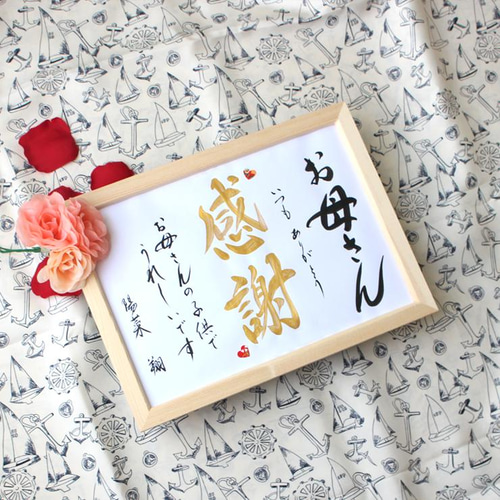 お母さん
いつも ありがとう
感謝
お母さんの子供で
うれしいです
陽菜 翔